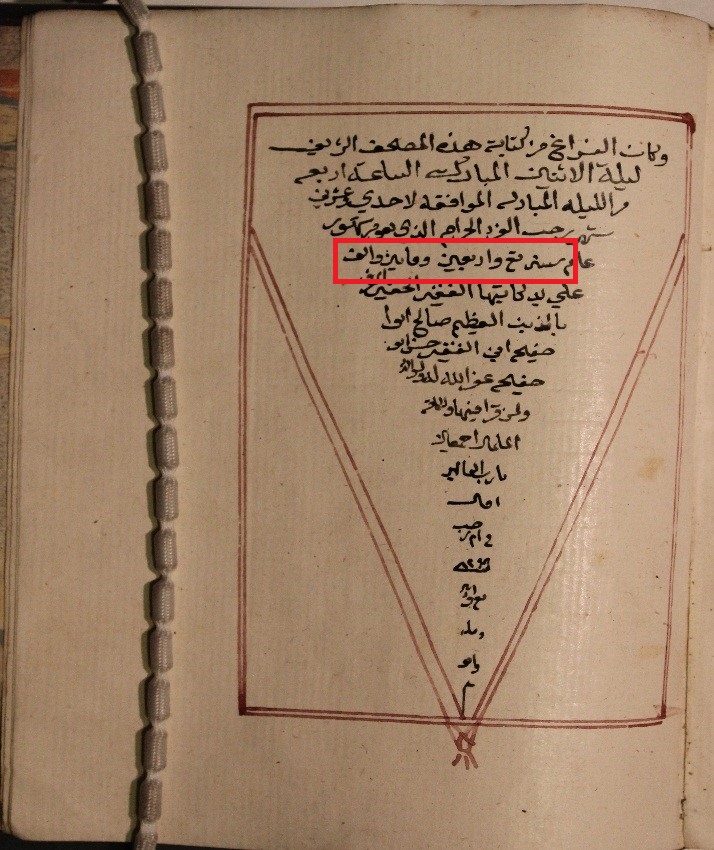 وكان الفراغ من كتابة هذه المصحف الشريف
ليلة الاثنين المباركه الساعة اربعه
من الليله المباركه الموافقه لاحدي وعشرين
شهر رجب الفرد الحرام الذي هو من شهور
عام سنة تسع واربعين ومايتين والف
علي يد كاتبها الفقير الحقير
بالذنب العظيم صالح ابوا
صفيح ابن الفقير حسن ابو
صفيح عفر الله له ولوالديه
ولمن قرا فيها وللمسلمين
اجمعين
يارب العالمين
امين
في ١م رجب
سنة ١٢٤٩
تم